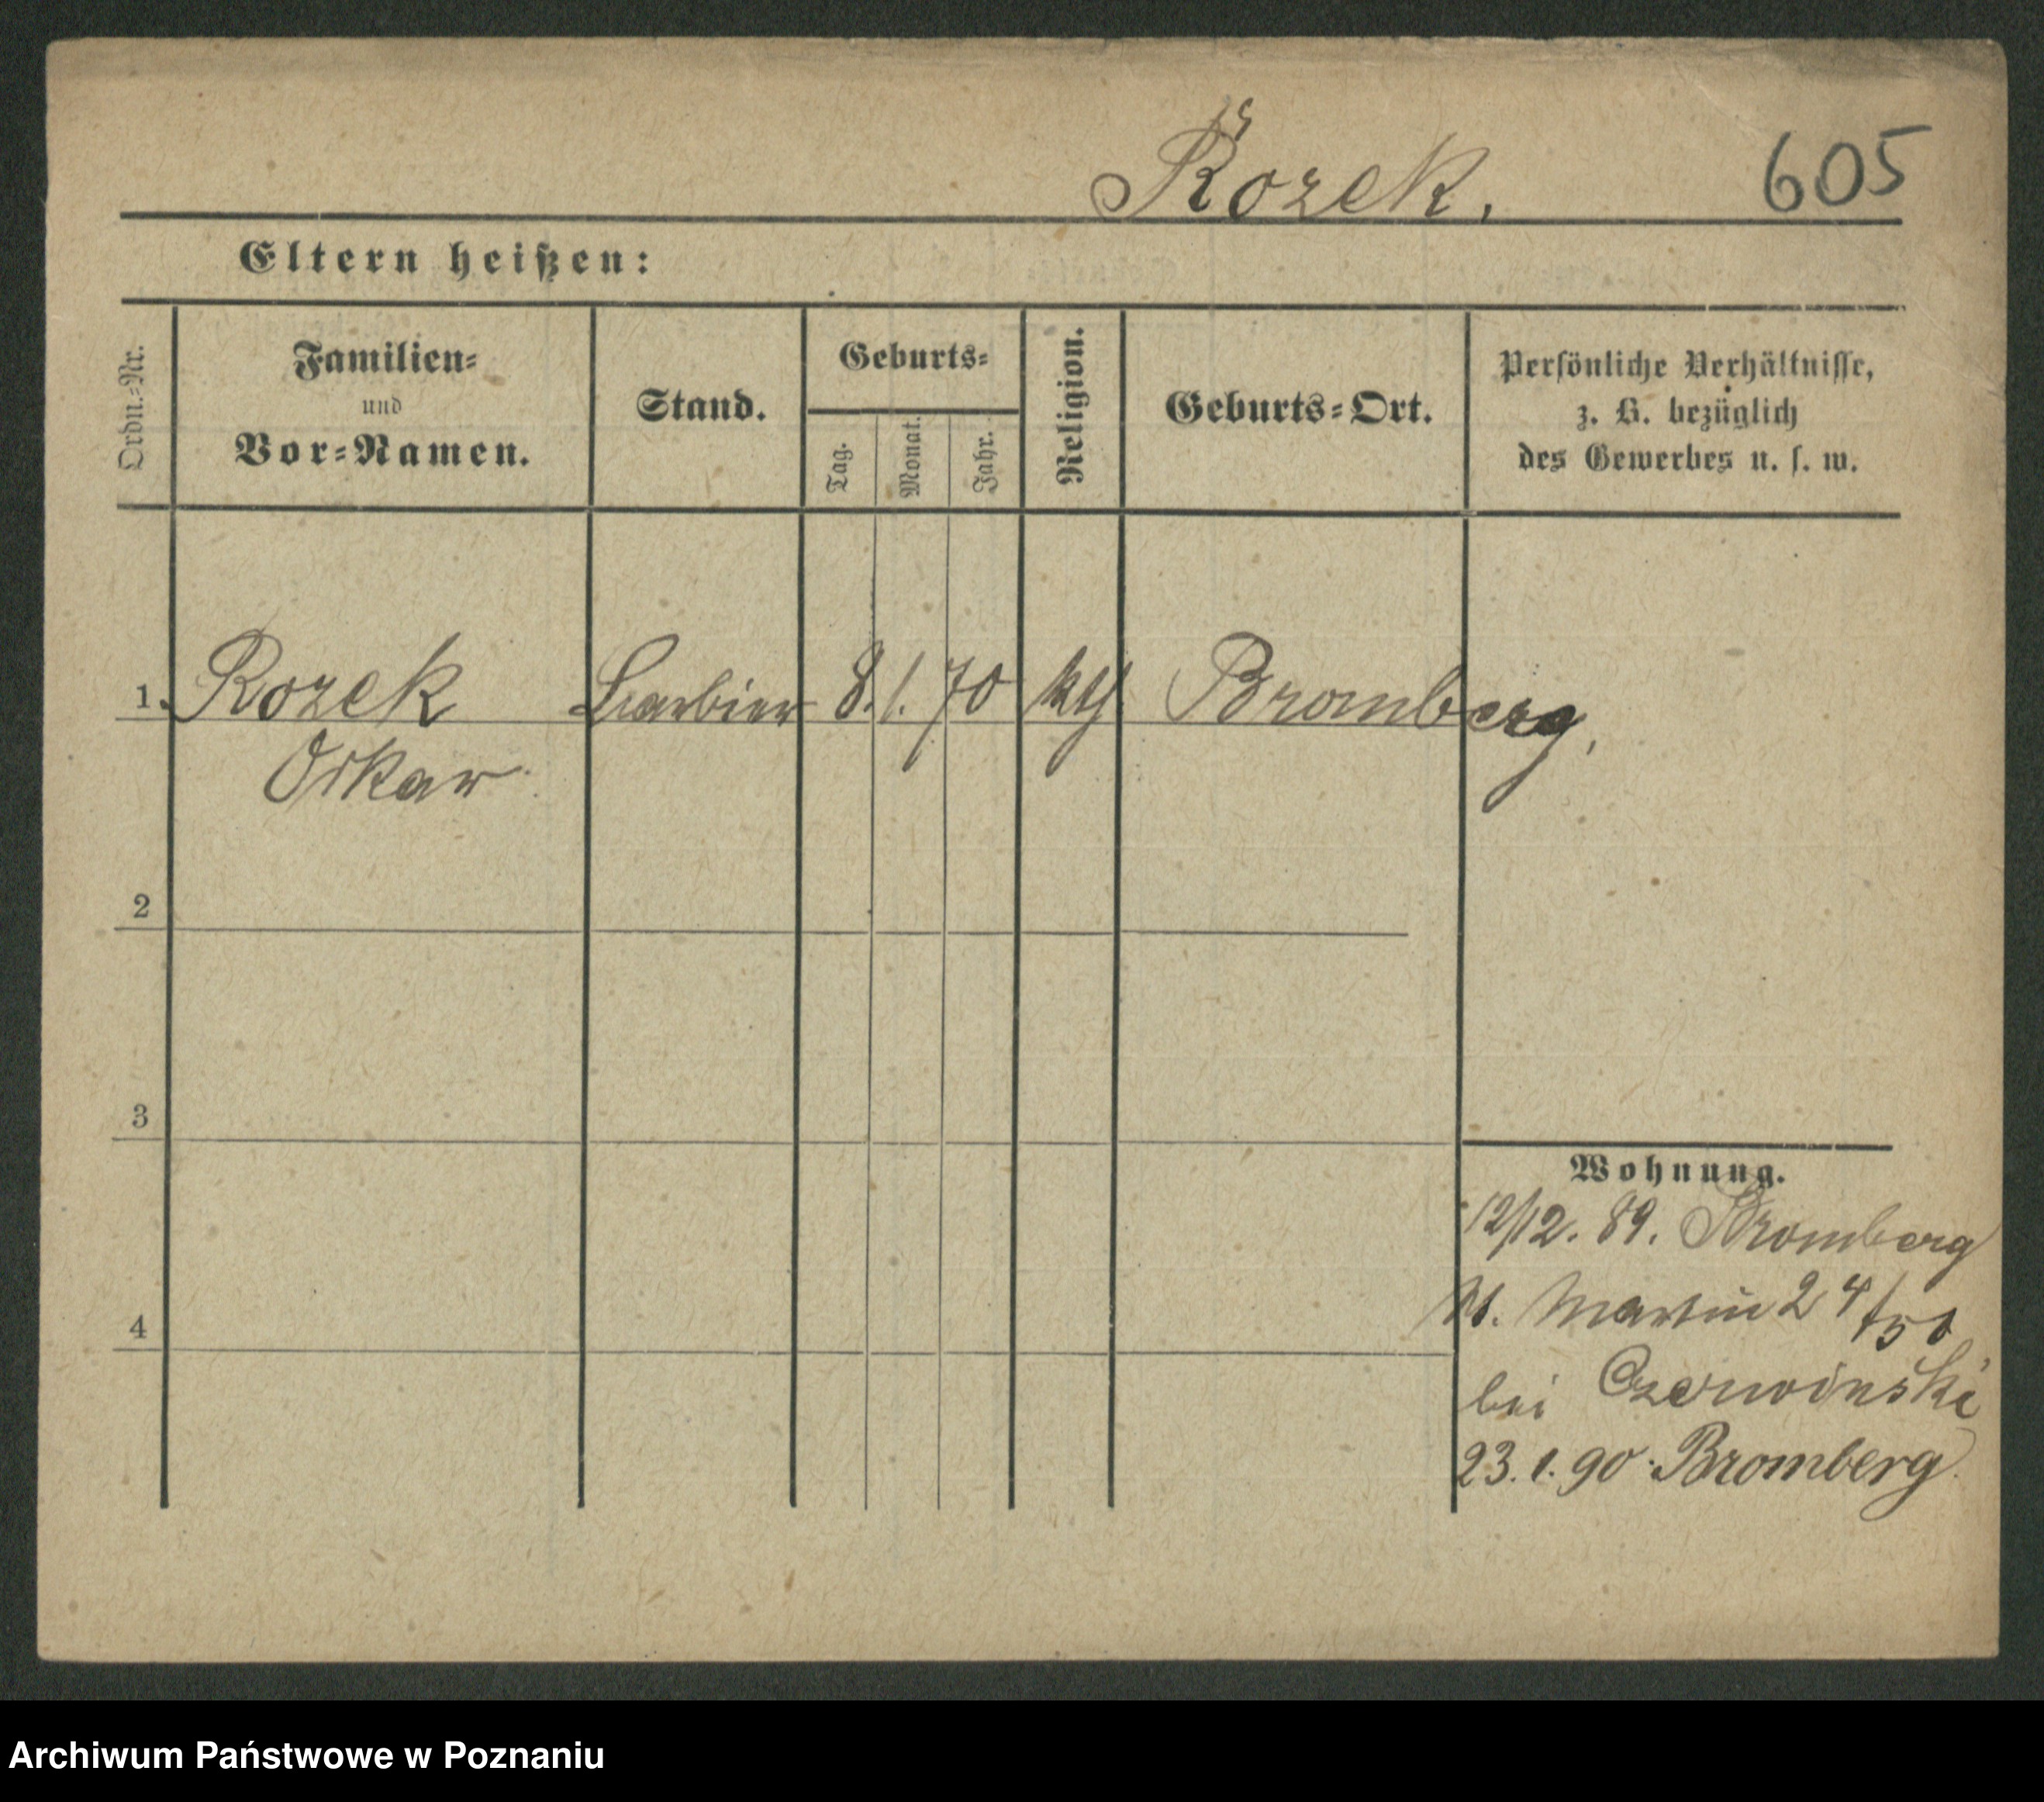 Rozek.
605
Eltern heißen:
Ordn.-Nr.
Familien-
und
Vor-Namen.
Stand.
Geburts-
Tag.
Monat.
Jahr.
Religion.
Geburts-Ort.
Persönliche Verhältnisse,
z. B. bezüglich
des Gewerbes u. s. w.
1. Rozek Barbier 8. 1. 70 kth Bromberg,
Oskar
2
3
4
Wohnung.
12/12. 89. Bromberg
St. Martin 24
bei Czerwinski
23. 1. 90. Bromberg.
Archiwum Państwowe w Poznaniu